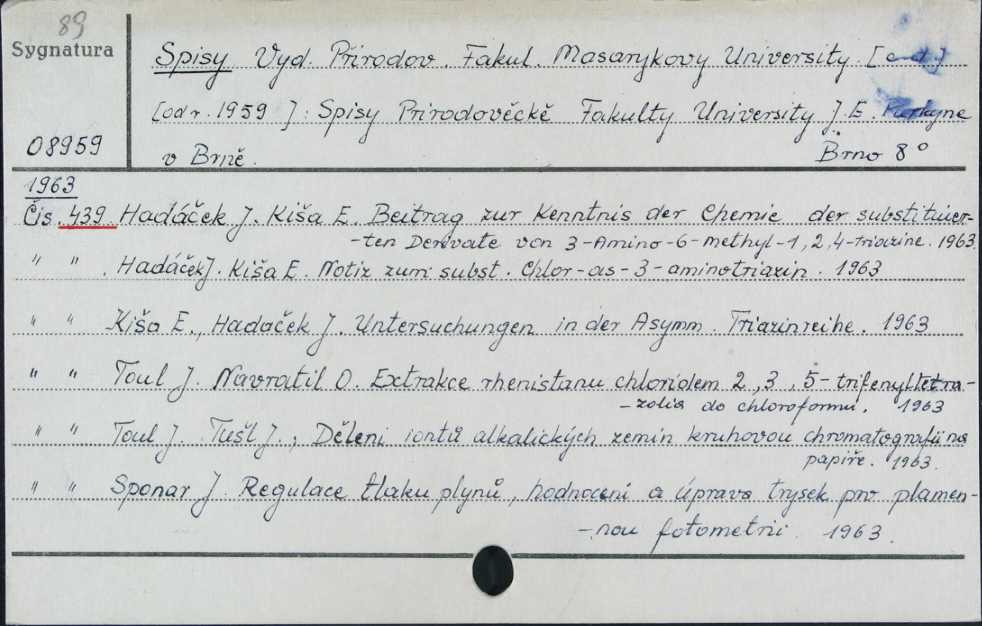 89
Sygnatura
Spisy Vyd. Přirodov. Fakul. Masarykovy University. [c.d.]
[od r. 1959 ]: Spisy Prirodověckě Fakulty University J. E. Purkyne
08959
v Brně.
Brno 8°
1963
Čis. 439. Hadáček J. Kiša E. Beitrag zur Kenntnis der Chemie der substituier-
-ten Derivate von 3-Amino-6-methyl-1,2,4-triazine. 1963
" " . Hadáček J. Kiša E. Notiz zum subst. Chlor-as-3-aminotriazin. 1963
" " Kiša E., Hadaček J. Untersuchungen in der Asymm. Triazinreihe. 1963
" " Toul J. Navratil O. Extrakce rhenistanu chloridem 2,3,5-trifenyltetra-
-zolia do chloroformu. 1963
" " Toul J. Tušl J., Děleni iontů alkalických zemin kruhovou chromatografii na
papiře. 1963.
" " Sponar J. Regulace tlaku plynů, hodnoceni a úprava trysek pro plamen-
-nou fotometrii 1963.